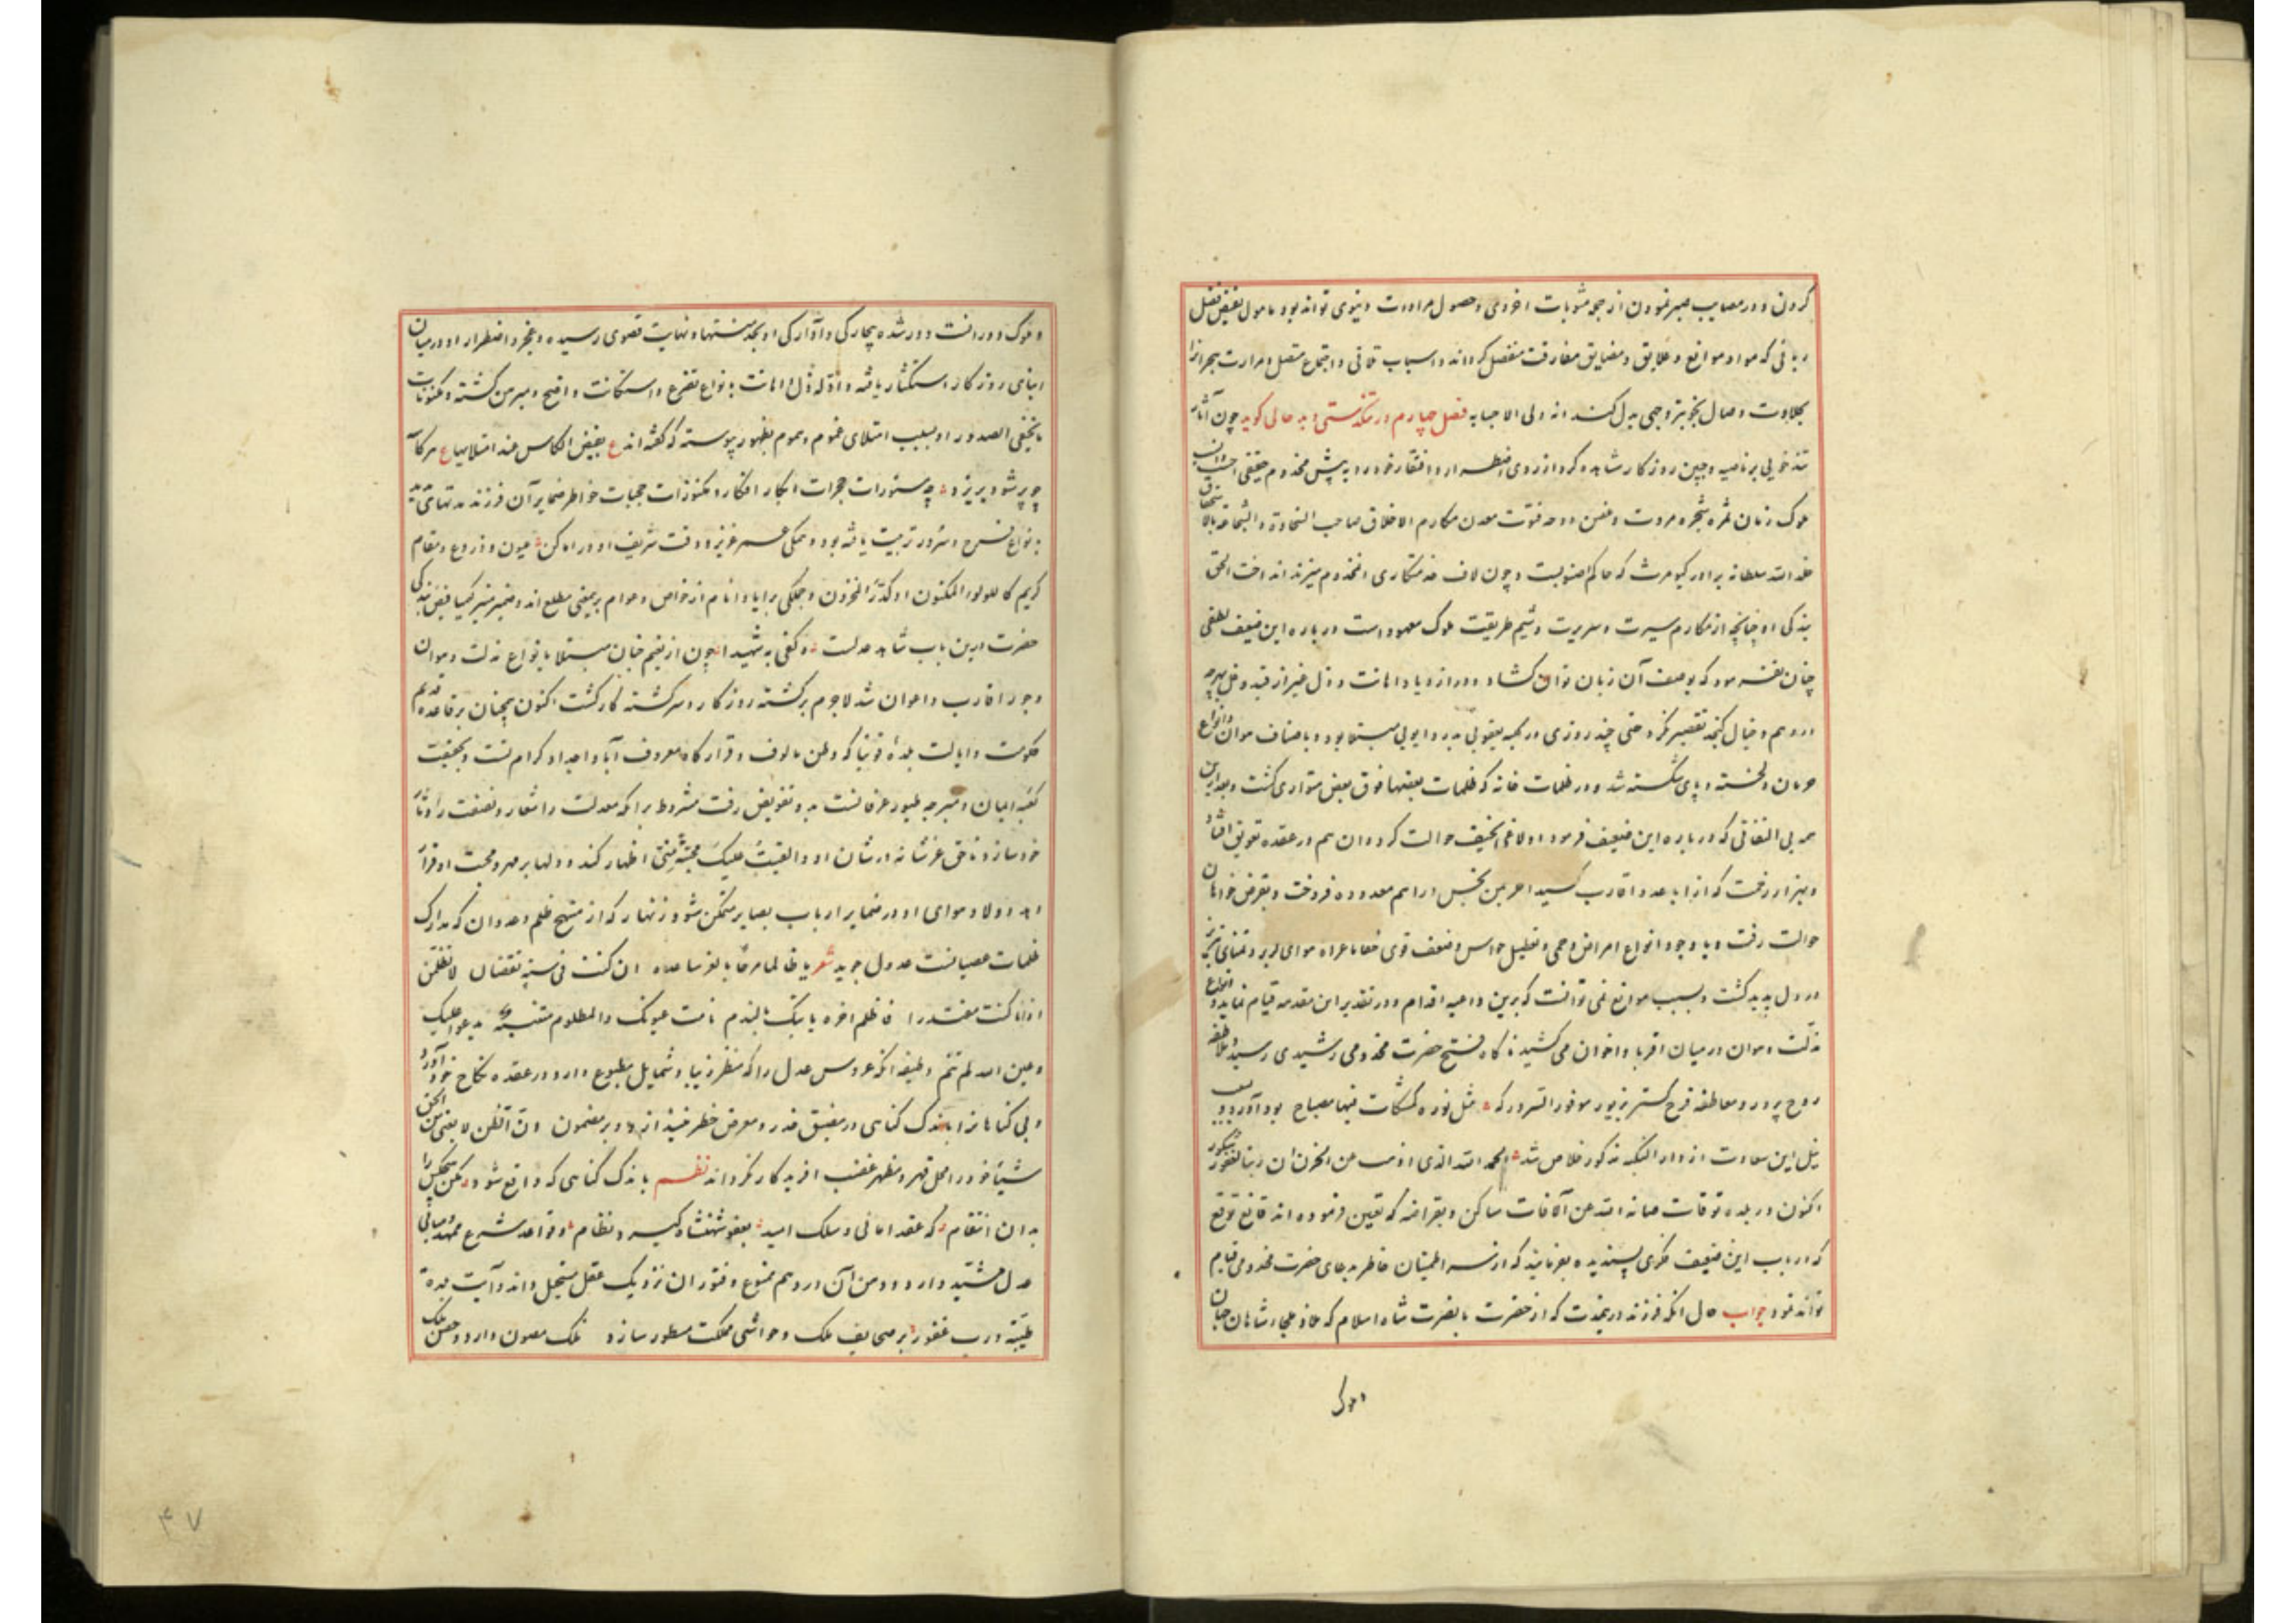 کردن و در مصایب صبر نمودن از جمله مثوبات اخروی و حصول مرادات دنیوی تواند بود مامول بفیض فضل
ربانی که مواد موانع و علایق و مضایق مفارقت منفصل کرداند و اسباب تلاقی و اجتماع متصل و مرارت هجرانرا
بحلاوت وصال بخوبتر وجهی بدل کند انه ولی الاجابه فصل چهارم در تنکدستی و بد حالی کوید چون آثار
تندخویی بر ناصیه و جبین روزکار مشاهده کرد از روی اضطرار و افتقار خود را به پیش مخدوم حقیقی
ملوک زمان ثمره شجره مروت و غصن دوحه فتوت معدن مکارم الاخلاق صاحب السخاوة والشجاعة
خلد الله سلطانه برادر کیومرث که حاکم اصنوبست و چون لاف خدمتکاری مخدوم میزند انداخت الحق
بندکی او چنانچه از مکارم سیرت و سریرت و شیم طریقت ملوک معهود است در باره این ضعیف لطفی
چنان نفرمود که بوصف آن زبان توان کشاد و در ازدیاد اهانت و ذل غیر از قید و غل بهرچه
در وهم و خیال کنجد تقصیر نکرد حتی چند روزی در کلبه یعقوبی بدرد ایوبی مبتلا بود و باصناف هوان و انواع
حرمان دلخسته و پای شکسته شد و در ظلمات خانه که ظلمات بعضها فوق بعض متواری کشت و بعد ازین
هر بی التفاتی که در باره این ضعیف فرمود اولاغی الخیف حوالت کرد و ان هم در عقده تعویق افتاد
و بهزار زحمت که از اباعد و اقارب کشید اجر من بخس دراهم معدوده فروخت و بقرض خواهان
حوالت رفت و با وجود انواع امراض و حمی و تعطیل حواس و ضعف قوی
در دل پدید کشت و بسبب موانع نمی توانست که برین داعیه اقدام و در تقدیر این مقدمه قیام نماید و انواع
مذلت و هوان در میان اقربا و اخوان می کشید ناکاه فتح حضرت مخدومی رشیدی رسید و ملاطفه
روح پرور و معاطفه فرح کستر بزیور موفور السرور که مثل نوره کمشکات فیها مصباح بود آورد و
نیل این سعادت از دار النکبه مذکور خلاص شد الحمد لله الذی اذهب عن الحزن ان ربنا لغفور شکور
اکنون در بلده توقات صانه الله عن الآفات ساکن و بقراضه که تعیین فرموده اند قانع توقع
که در باب این ضعیف فکری پسندیده بفرمایند که از سر اطمینان خاطر بدعای حضرت مخدومی قیام
تواند نمود جواب حال انکه فرزند درینمدت که از حضرت با نصرت شاه اسلام که ملاذ و ملجا شاهان جهان
و ملوک
و ملوک دورانست دور شده بیچارکی و آوارکی او بحد منتها و نهایت قصوی رسیده و عجز و اضطرار او در میان
ابنای روزکار استکثار یافته و ادله ذل و اهانت بانواع تضرع و استکانت واضح و مبرهن کشته و مکنونات
ما تخفی الصدور او بسبب امتلای غموم و هموم بظهور پیوسته که کفته اند ع یفیض الکاس عند امتلائها ع هر کآ
چو پر شود بریزد چه مستورات حجرات ابکار افکار و مکنوزات حجبات خواطر ضمایر آن فرزند مدتهای مدید
بانواع فرح و سرور تربیت یافته بود و همکی عمر عزیز و وقت شریف او در اماکن عیون و زروع و مقام
کریم کاللولو المکنون او کدر المخزون و جملکی برایا و انام از خواص و عوام برینمعنی مطلع اند و ضمیر منیر کیمیا فیض بندکی
حضرت درین باب شاهد عدلست و کفی به شهیدا چون از نعیم جنان مبتلا بانواع مذلت و هوان
و جور اقارب و اعوان شد لاجرم برکشته روزکار و سرکشته کار کشت اکنون همچنان بر قاعده قدیم
حکومت و ایالت بلده قونیا که وطن مالوف و قرارکاه معروف آبا و اجداد کرام تست و بحقیقت
کعبه ایمان و طیور عرفانست بدو تفویض رفت مشروط برانکه معدلت را شعار و نصفت را دثار
خود سازد تا حق عز شانه در شان او و القیت علیک محبة منی اظهار کند و دلها بر مهر و محبت او قرار
دهد و ولا و هوای او در ضمایر ارباب بصایر متمکن شود زنهار که از منهج ظلم و عدوان که مدارک
ظلمات عصیانست عدول جوید شعر یا ظالما فرحا بالعز ساعده ان کنت فی سنه یقضان لا تظلمن
اذا ما کنت مقتدرا فالظلم اخره یاتیک بالندم نامت عیونک والمظلوم منتبه یدعو علیک
و عین الله لم تنم وظیفه انکه عروس عدل را که منظر زیبا و شمایل مطبوع دارد در عقده نکاح خود آورد
و بی کناهانرا باندک کناهی در مضیق قدر و معرض خطر نیندازد و بر مضمون و ان الظن لا یغنی من الحق
شیئا خود را محل قهر و مظهر غضب افریدکار نکرداند نظم باندک کناهی که واقع شود مکن هیچکس را
بدان انتقام که عقد امانی و سلک امید بعفو شهنشاه کیرد نظام و قواعد شرع ممهد و مبانی
عدل مشید دارد و وهن آن در وهم ممنوع و فتور ان نزدیک عقل مستحیل داند و آیت بلدة
طیبة و رب غفور بر صحایف ملک و حواشی مملکت مسطور سازد ملک مصون دارد و حصن ملک
۴۷